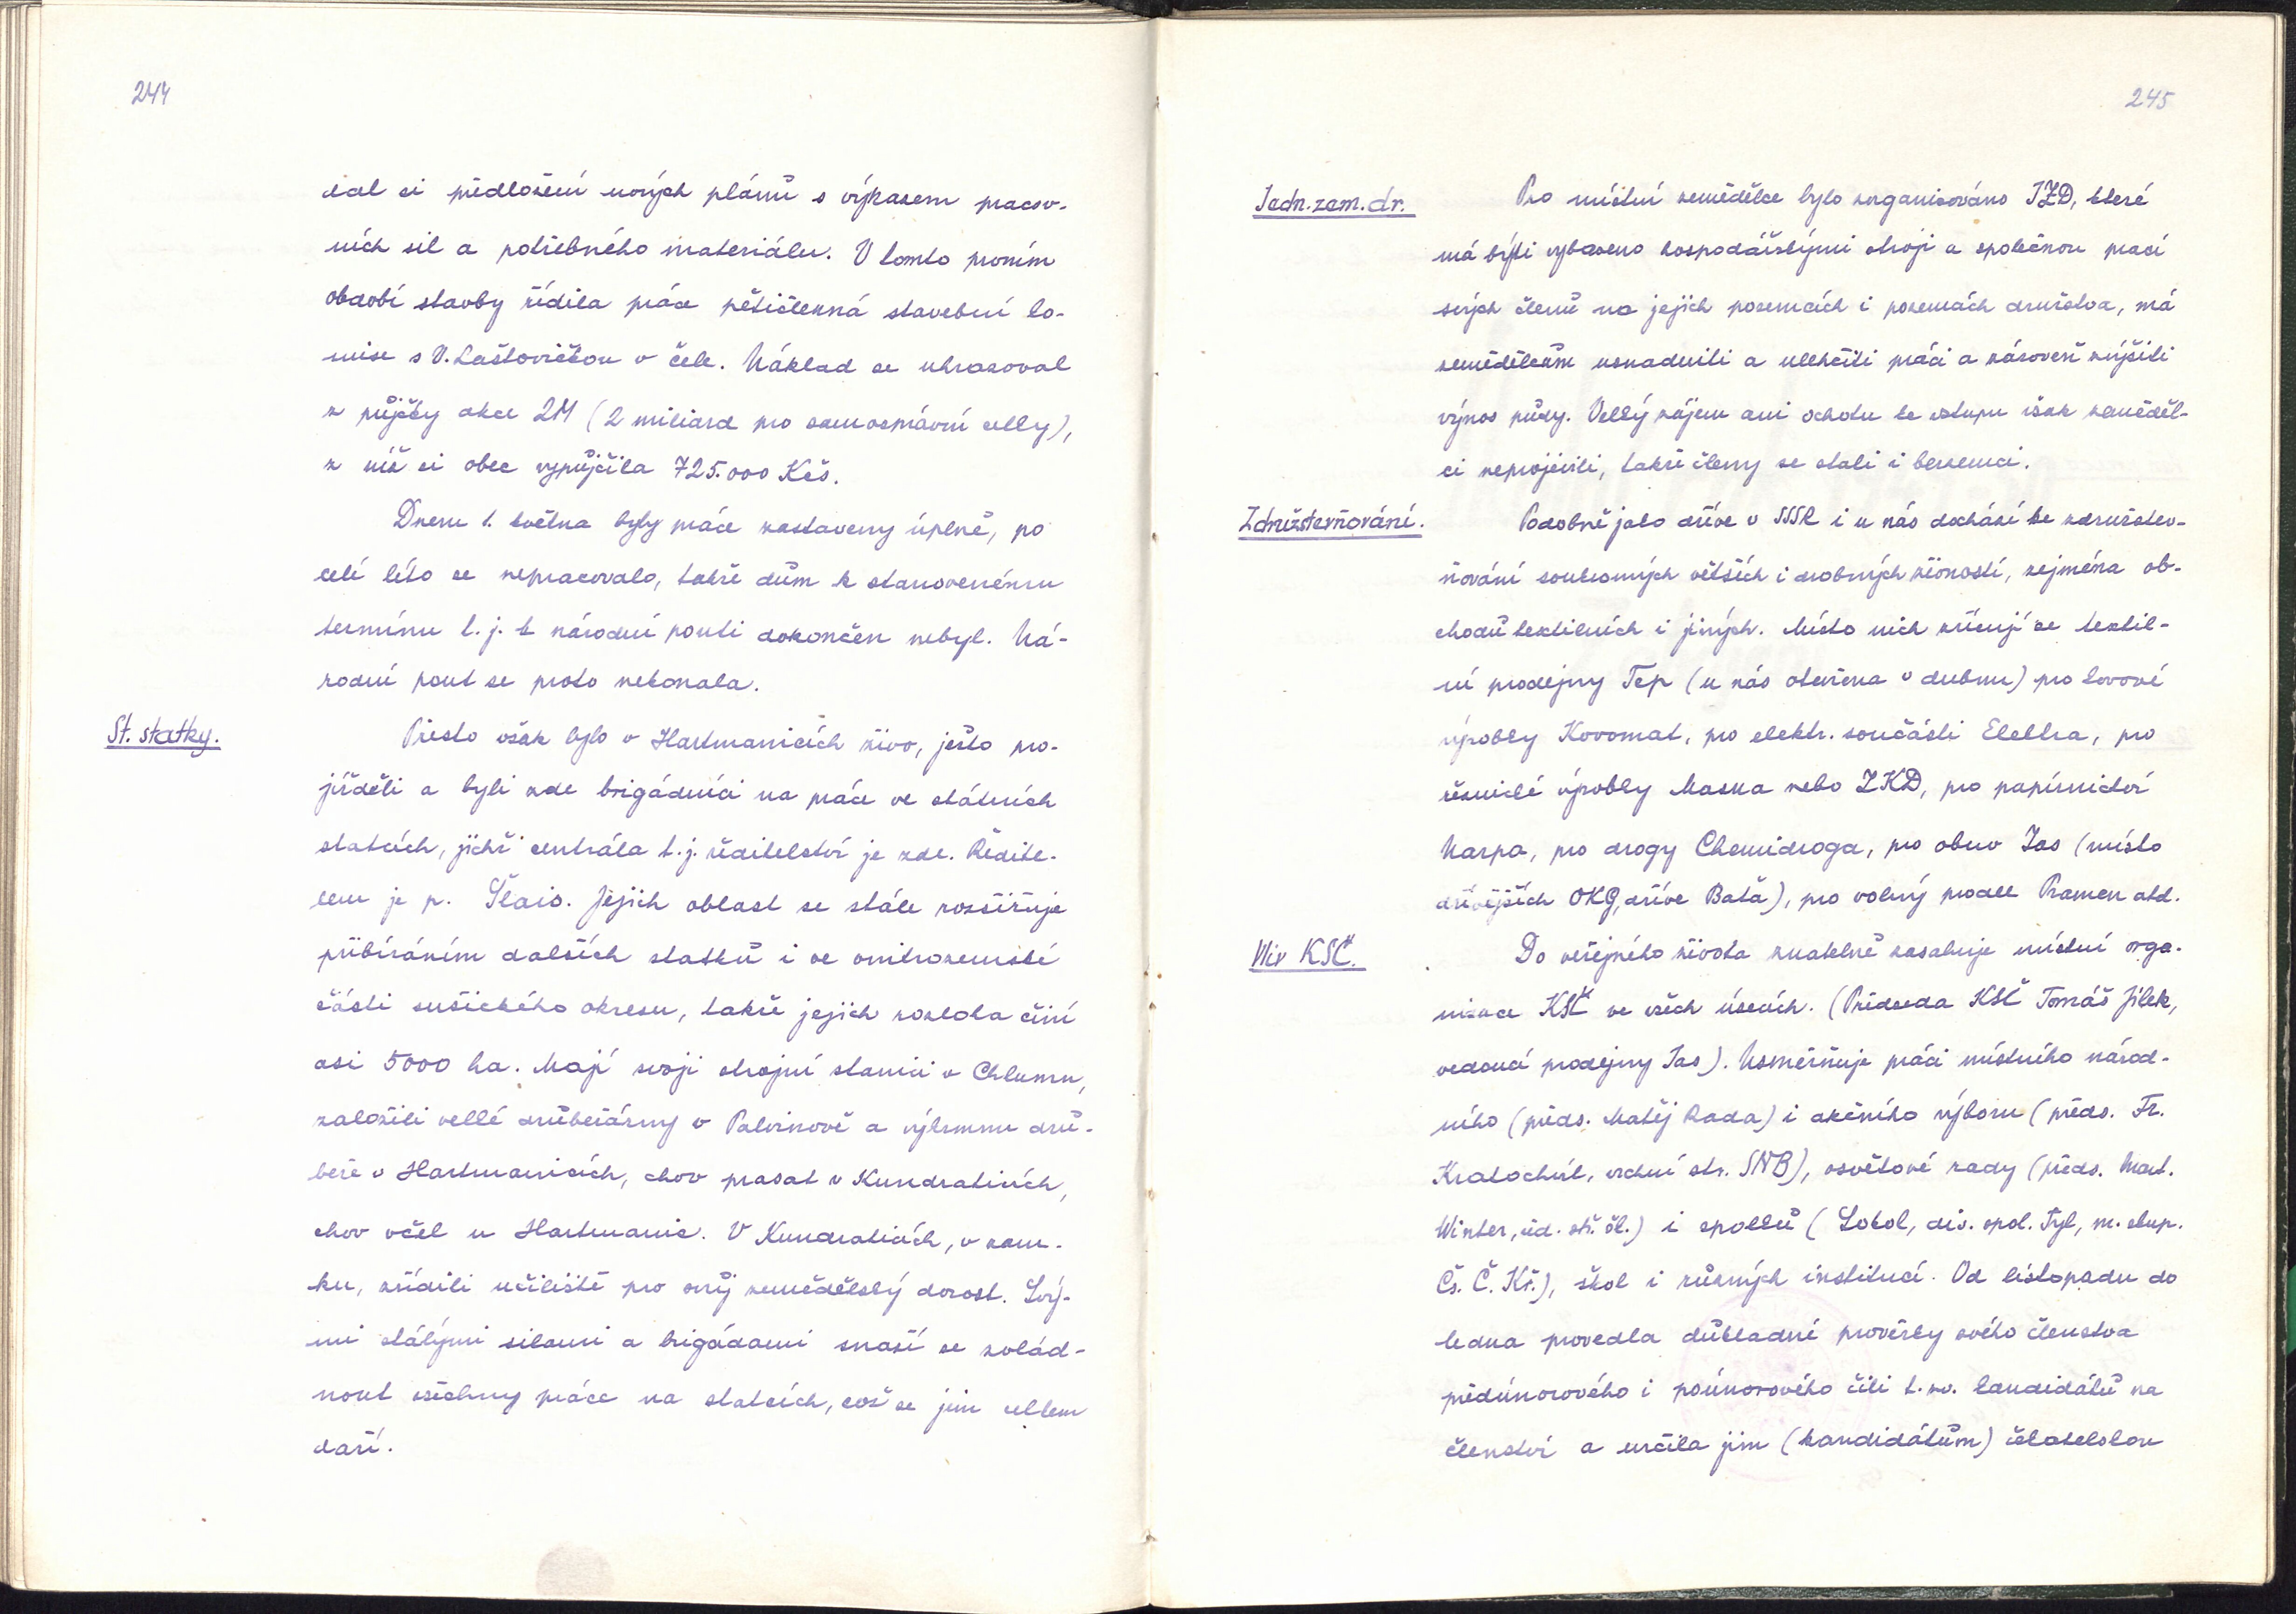 244
dal si předložení nových plánů s výkazem pracov-
ních sil a potřebného materiálu. V tomto prvním
období stavby řídila práce pětičlenná stavební ko-
mise s V. Laštovičkou v čele. Náklad se uhrazoval
z půjčky akce 2M (2 miliard pro samosprávní celky),
z níž si obec vypůjčila 725.000 Kčs.
Dnem 1. května byly práce zastaveny úplně, po
celé léto se nepracovalo, takže dům k stanovenému
termínu t. j. k národní pouti dokončen nebyl. Ná-
rodní pouť se proto nekonala.
St. statky.
Přesto však bylo v Hartmanicích živo, ješto pro-
jížděli a byli zde brigádníci na práce ve státních
statcích, jichž centrála t. j. ředitelství je zde. Ředite-
lem je p. Šlais. Jejich oblast se stále rozšiřuje
přibíráním dalších statků i ve vnitrozemské
části sušického okresu, takže jejich rozloha činí
asi 5000 ha. Mají svoji strojní stanici v Chlumu,
založili velké drůbežárny v Palvinově a výkrmnu drů-
beže v Hartmanicích, chov prasat v Kundraticích,
chov včel u Hartmanic. V Kundraticích, v zám-
ku, zřídili učiliště pro svůj zemědělský dorost. Svý-
mi stálými silami a brigádami snaží se zvlád-
nout všechny práce na statcích, což se jim celkem
daří.
245
Jedn. zem. dr.
Pro místní zemědělce bylo zorganisováno JZD, které
má býti vybaveno hospodářskými stroji a společnou prací
svých členů na jejich pozemcích i pozemcích družstva, má
zemědělcům usnadniti a ulehčiti práci a zároveň zvýšiti
výnos půdy. Velký zájem ani ochotu ke vstupu však zeměděl-
ci neprojevili, takže členy se stali i bezzemci.
Združstevňování.
Podobně jako dříve v SSSR i u nás dochází ke združstev-
ňování soukromých větších i drobných živností, zejména ob-
chodů textilních i jiných. Místo nich zřizují se textil-
ní prodejny Tep (u nás otevřena v dubnu) pro kovové
výrobky Kovomat, pro elektr. součásti Elektra, pro
řeznické výrobky Masna nebo ZKD, pro papírnictví
Narpa, pro drogy Chemidroga, pro obuv Jas (místo
dřívějších OKG, dříve Baťa), pro volný prodej Pramen atd.
Vliv KSČ.
Do veřejného života znatelně zasahuje místní orga-
nisace KSČ ve všech úsecích. (Předseda KSČ Tomáš Jílek,
vedoucí prodejny Jas). Usměrňuje práci místního národ-
ního (předs. Matěj Rada) i akčního výboru (předs. Fr.
Kratochvíl, vrchní str. SNB), osvětové rady (předs. Mart.
Winter, řid. stř. šk.) i spolků (Sokol, div. spol. Tyl, m. skup.
Čs. Č. Kř.), škol i různých institucí. Od listopadu do
ledna provedla důkladné prověrky svého členstva
předúnorového i poúnorového čili t. zv. kandidátů na
členství a určila jim (kandidátům) čekatelskou